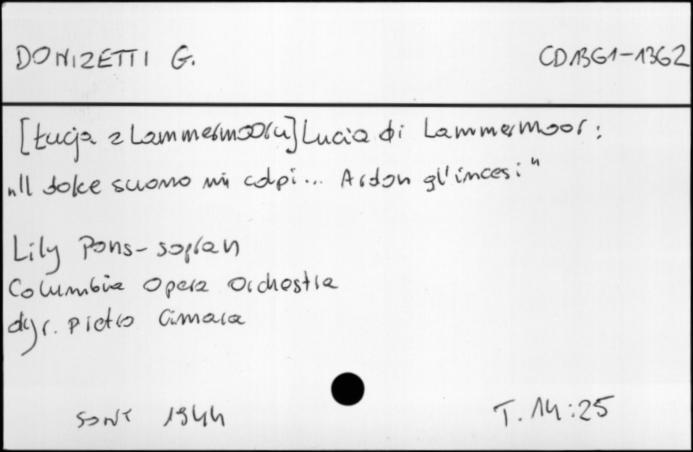 DONIZETTI G. CD1361-1362
[Łucja z Lammermooru] Lucia di Lammermoor:
„Il dolce suono mi colpi... Ardon gl'incesi"
Lily Pons - sopran
Columbia Opera Orchestra
dyr. Pietro Cimara
SONY 1944 T. 14:25